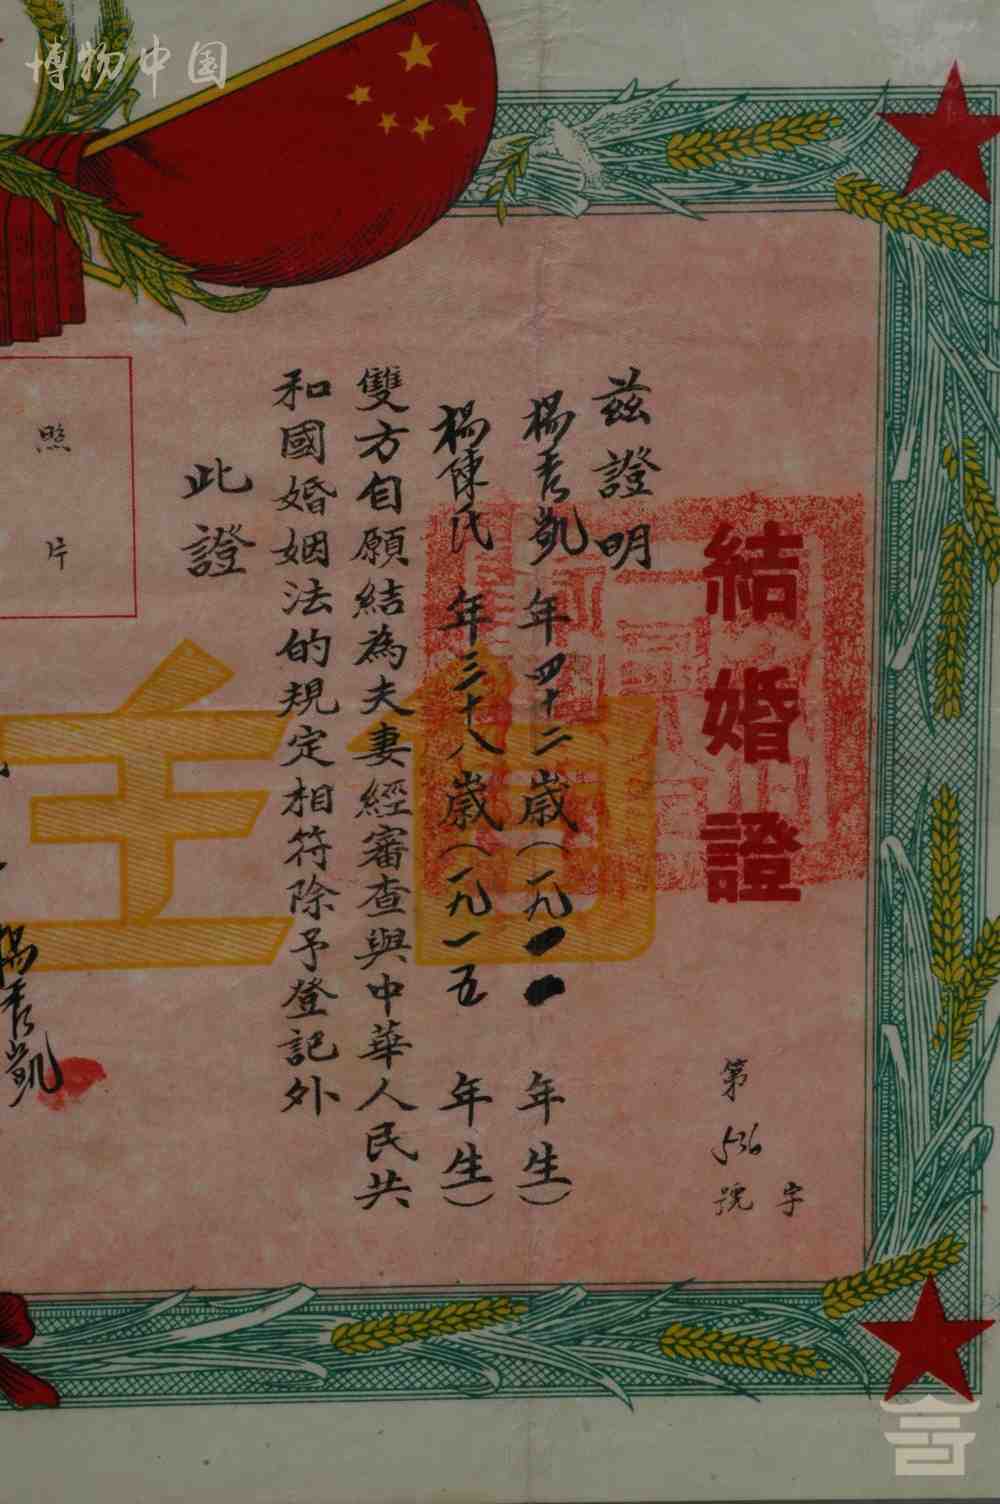 博物中国
結婚證
字
第536號
兹證明
楊秀凱 年四十二歲(一九一一 年生)
楊陳氏 年三十八歲(一九一五 年生)
雙方自願結為夫妻經審查與中華人民共
和國婚姻法的規定相符除予登記外
此證
自主
照片
楊秀凱